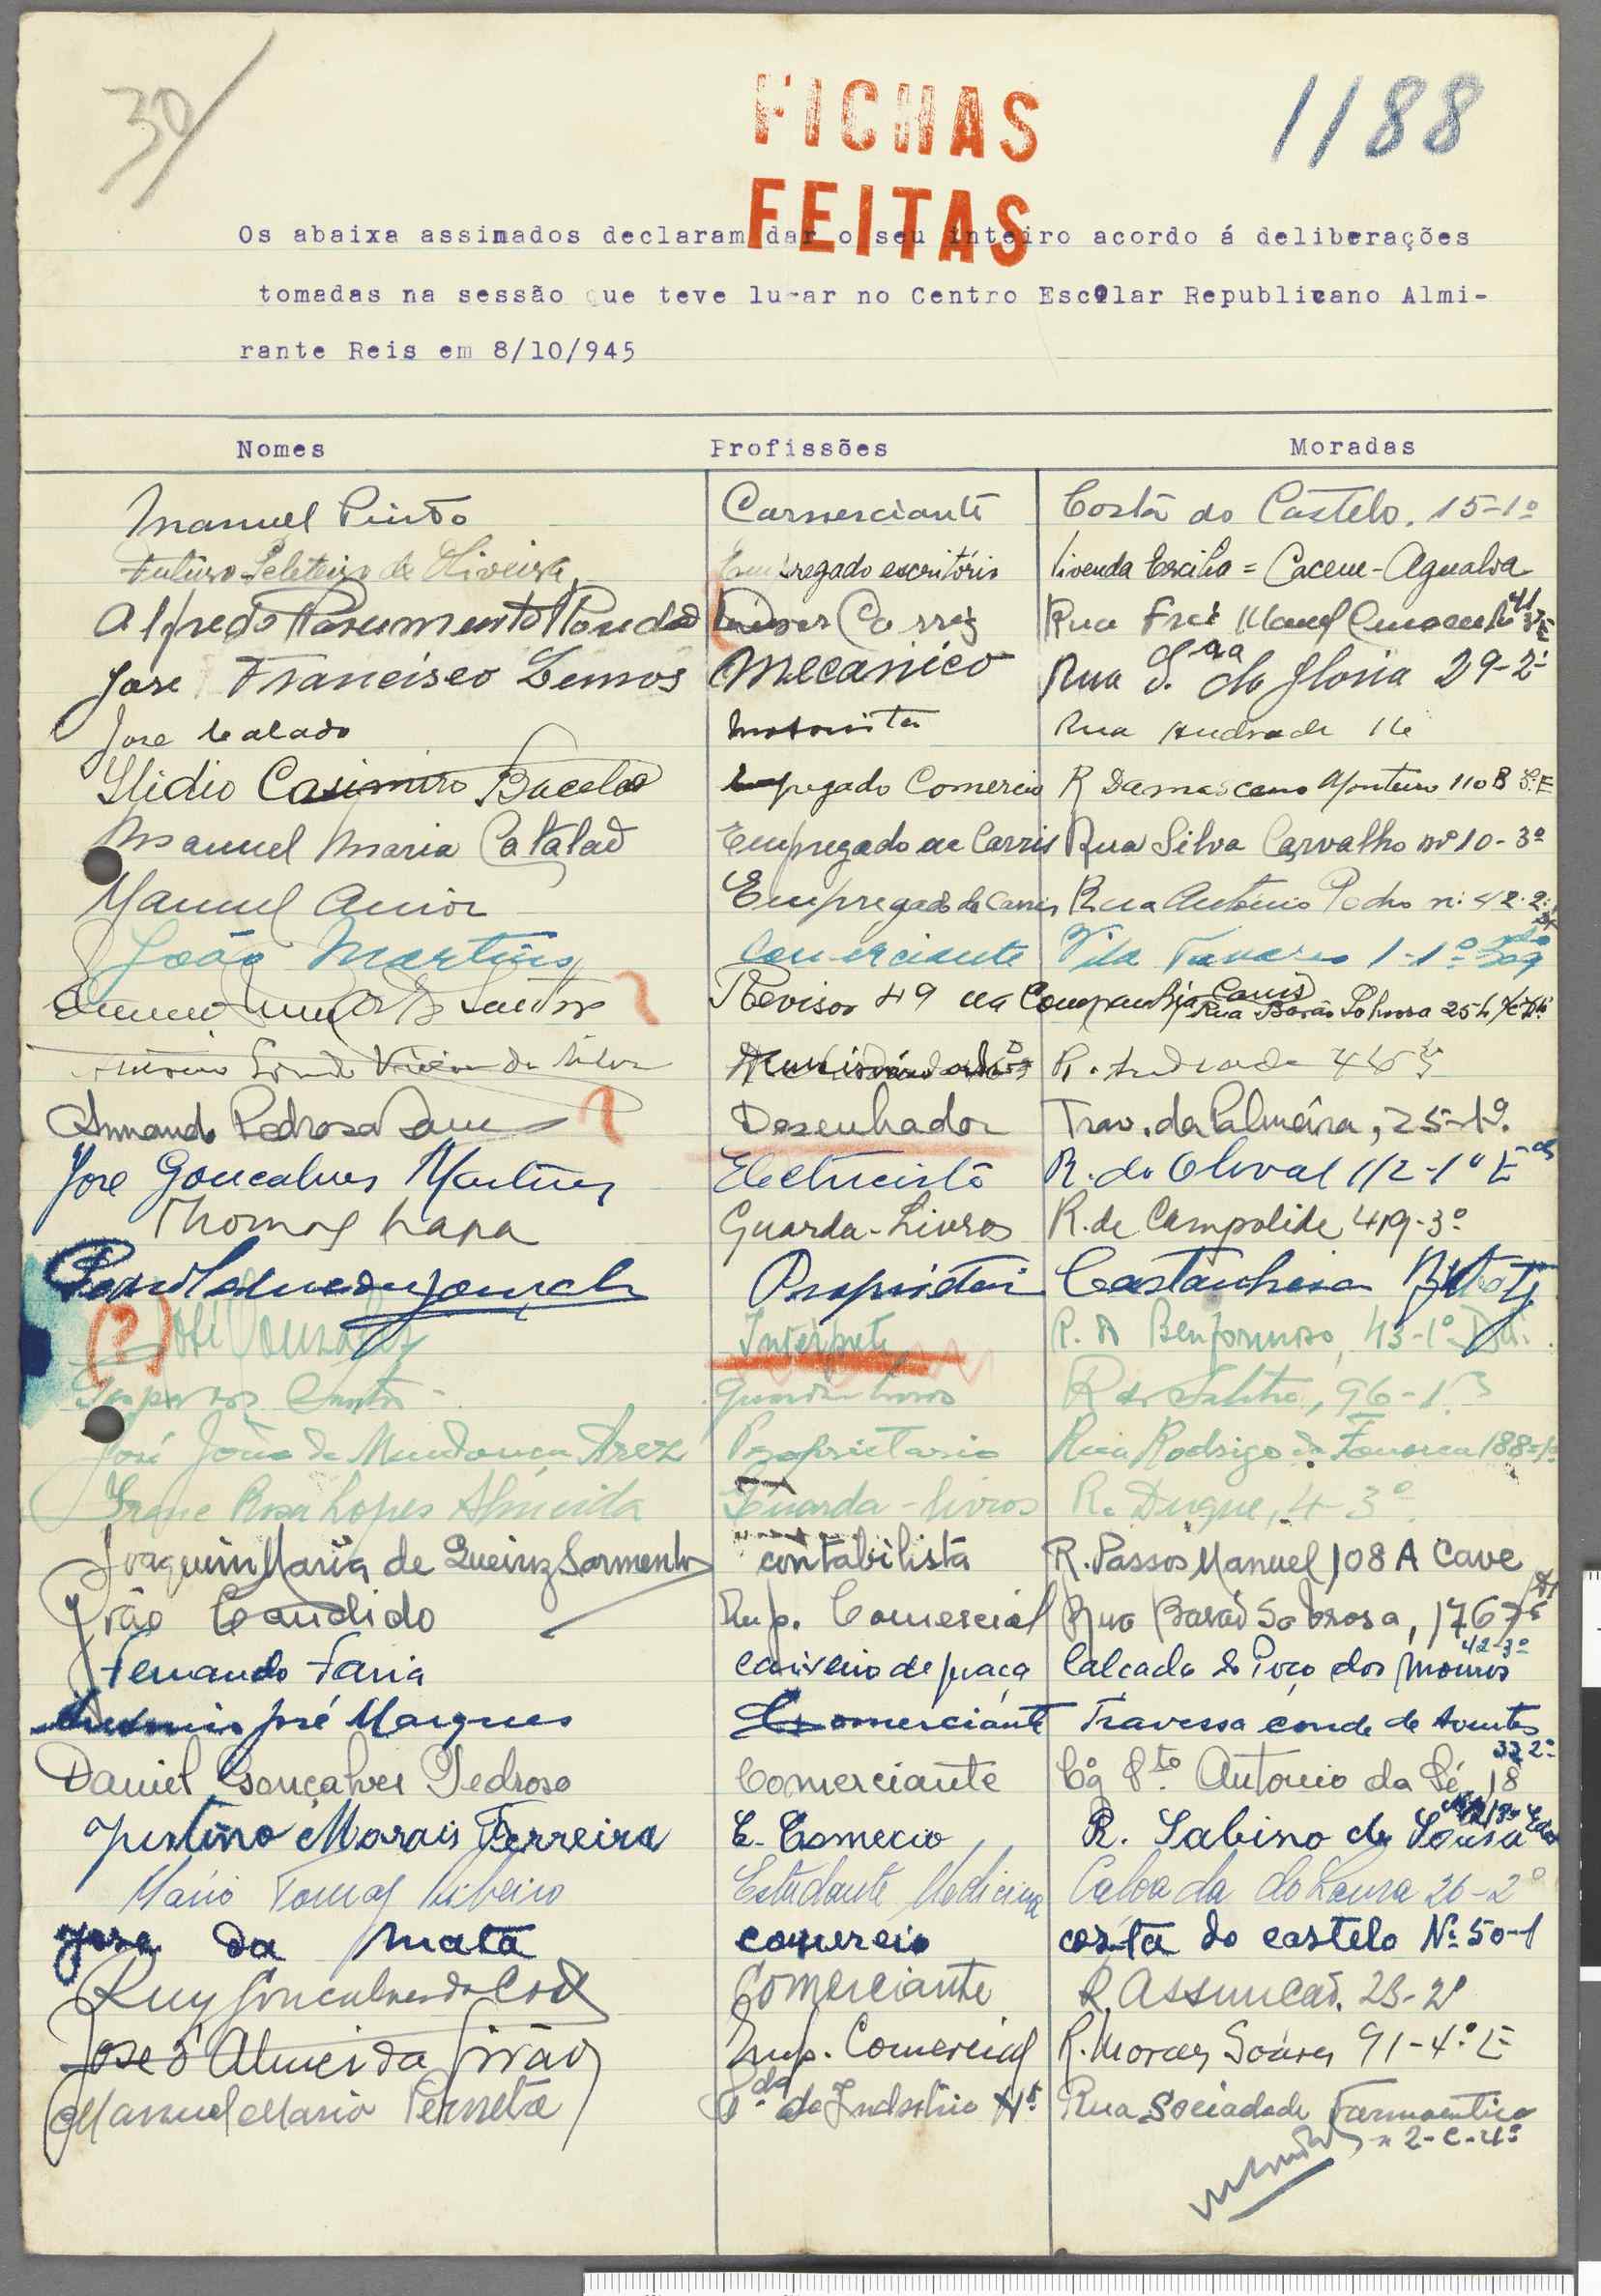 30
FICHAS
1188
FEITAS
Os abaixa assinados declaram dar o seu inteiro acordo á deliberações
tomadas na sessão que teve lugar no Centro Escolar Republicano Almi-
rante Reis em 8/10/945
Nomes Profissões Moradas
Manuel Pinto Comerciante Costa do Castelo, 15-1º
Futuro Peleteiro de Oliveira Empregado escritório Vivenda Ercilia = Cacem-Agualva
Alfredo Rua Frei Manuel
José Francisco Lemos Mecanico Rua S.ra da Gloria 29-2º
José Calado Motorista Rua Andrade
Ilidio Casimiro Bacelar Empregado Comercio R Damasceno Monteiro 110 B
Manuel Maria Catalão Empregado da Carris Rua Silva Carvalho nº 10-3º
Manuel Empregado da Carris Rua Antonio Pedro nº 42-2º
João Martins Comerciante Vila Tavares 1-1º
Revisor 49 na Companhia Carris Rua Barão Sabrosa
da Silva R. Andrade
Armando Pedrosa Desenhador Trav. da Palmeira, 25-1º
José Goncalves Martins Electricista R. do Olival 112-1º E
Thomaz Lapa Guarda-Livros R. de Campolide 419-3º
Castanheira
(?) José Gonzalez Interprete R. do Benformoso, 43-1º Dto.
Gaspar Guarda livros R do Salitre, 96-1º
José João de Mendonça Arez Proprietario Rua Rodrigo da Fonseca 188-1º
Irene Rosa Lopes Almeida Guarda-livros R. Duque, 4-3º
Joaquim Maria de Queiroz Sarmento contabilista R. Passos Manuel, 108 A Cave
João Candido Emp. Comercial Rua Barão Sabrosa, 176
Fernando Faria caixeiro de praça Calcada do Poço dos Mouros 42-3º
Antonio José Marques Comerciante Travessa conde de Avintes
33 2º
Daniel Gonçalves Pedroso Comerciante Cç Sto. Antonio da Sé, 18
Justino Morais Ferreira E. Comecio R. Sabino de Sousa
Mário Tomaz Ribeiro Estudante Medicina Calçada do Lavra 26-2º
José da Mata comercio costa do castelo Nº 50-1
Ruy Goncalves da Comerciante R. Assuncão, 23-2º
José d'Almeida Girão Emp. Comercial R. Moraes Soares 91-4º E
Manuel Maria Perneta da Industria Rua Sociedade Farmaceutica
n 2-C-4º